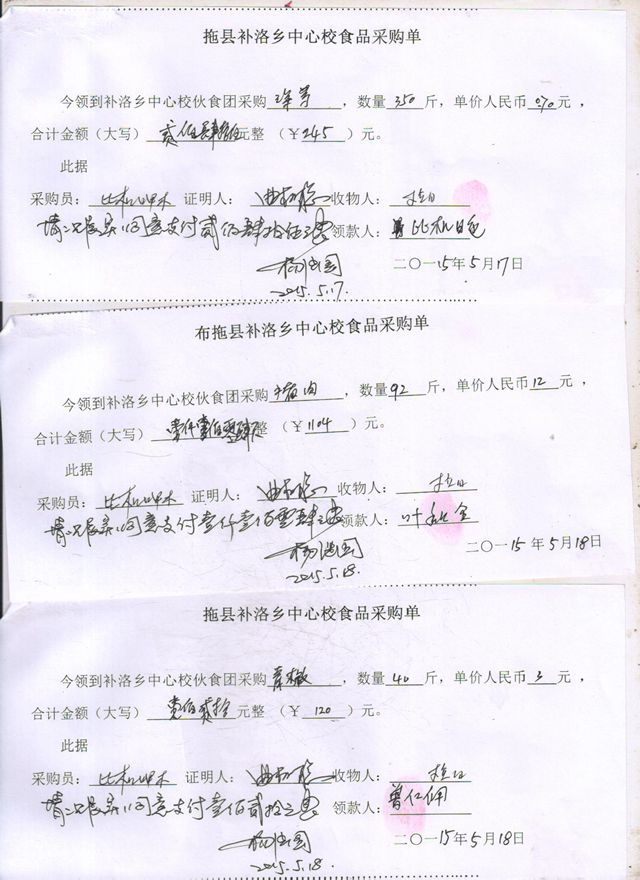 拖县补洛乡中心校食品采购单
今领到补洛乡中心校伙食团采购洋芋，数量350斤，单价人民币0.70元，
合计金额（大写）贰佰肆拾伍元整（￥245）元。
此据
采购员：比机呷木 证明人： 收物人：拉日
情况属实，同意支付贰佰肆拾伍元 领款人：比机
二〇一15年5月17日
2015.5.17.
布拖县补洛乡中心校食品采购单
今领到补洛乡中心校伙食团采购牛肉，数量92斤，单价人民币12元，
合计金额（大写）壹仟壹佰零肆元整（￥1104）元。
此据
采购员：比机呷木 证明人： 收物人：拉日
情况属实，同意支付壹仟壹佰零肆元 领款人：叶
二〇一15年5月18日
2015.5.18.
拖县补洛乡中心校食品采购单
今领到补洛乡中心校伙食团采购，数量40斤，单价人民币3元，
合计金额（大写）壹佰贰拾元整（￥120）元。
此据
采购员：比机呷木 证明人： 收物人：拉日
情况属实，同意支付壹佰贰拾元 领款人：曾仁佣
二〇一15年5月18日
2015.5.18.